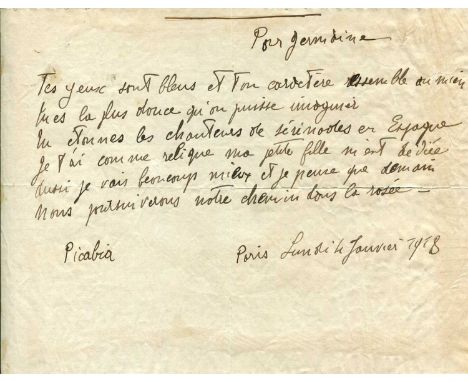 Pour Germaine
Tes yeux sont bleus et ton caractère ressemble au mien
tu es la plus douce qu'on puisse imaginer
tu étonnes les chanteurs de sérénades en Espagne
Je t'ai comme relique ma petite fille m'est dédiée
aussi je vais beaucoup mieux et je pense que demain
nous poursuiverons notre chemin dans la rosée
Picabia
Paris Lundi Janvier